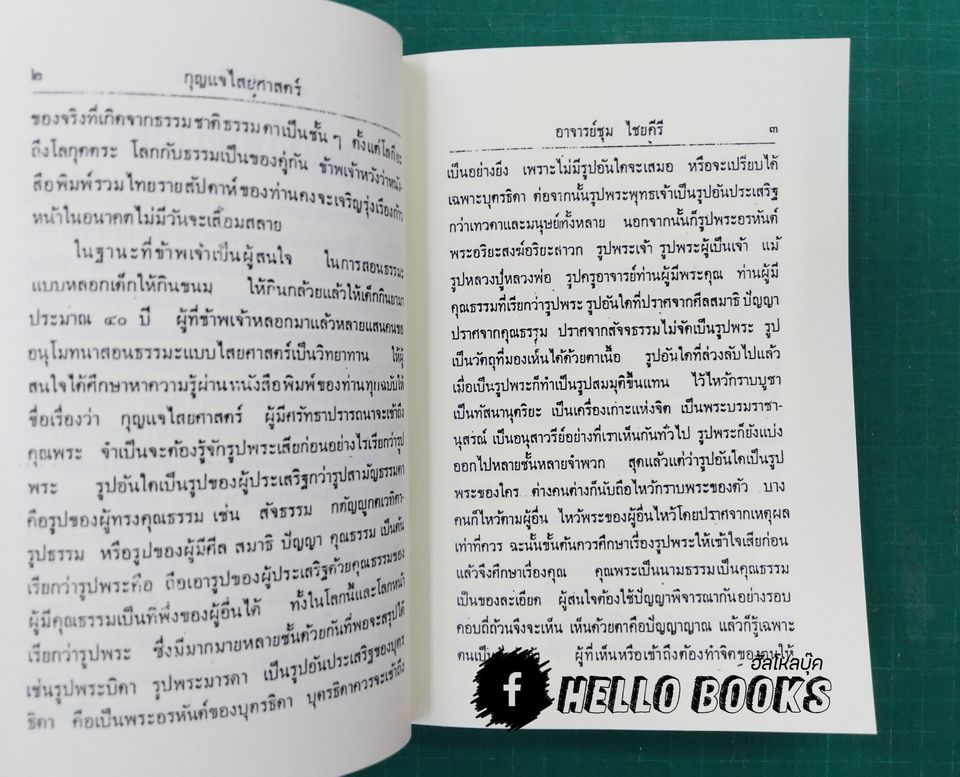 ๒
กุญแจไสยศาสตร์
ของจริงที่เกิดจากธรรมชาติธรรมดาเป็นชั้น ๆ ตั้งแต่โลกียะ
ถึงโลกุตตระ โลกกับธรรมเป็นของคู่กัน ข้าพเจ้าหวังว่าหนัง-
สือพิมพ์รวมไทยรายสัปดาห์ของท่านคงจะเจริญรุ่งเรืองก้าว
หน้าในอนาคตไม่มีวันจะเสื่อมสลาย
ในฐานะที่ข้าพเจ้าเป็นผู้สนใจ ในการสอนธรรมะ
แบบหลอกเด็กให้กินขนม ให้กินกล้วยแล้วให้เด็กกินยามา
ประมาณ ๔๐ ปี ผู้ที่ข้าพเจ้าหลอกมาแล้วหลายแสนคนขอ
อนุโมทนาสอนธรรมะแบบไสยศาสตร์เป็นวิทยาทาน ให้ผู้
สนใจได้ศึกษาหาความรู้ผ่านหนังสือพิมพ์ของท่านทุกฉบับให้
ชื่อเรื่องว่า กุญแจไสยศาสตร์ ผู้มีศรัทธาปรารถนาจะเข้าถึง
คุณพระ จำเป็นจะต้องรู้จักรูปพระเสียก่อนอย่างไรเรียกว่ารูป
พระ รูปอันใดเป็นรูปของผู้ประเสริฐกว่ารูปสามัญธรรมดา
คือรูปของผู้ทรงคุณธรรม เช่น สัจธรรม กตัญญูกตเวทิตา-
รูปธรรม หรือรูปของผู้มีศีล สมาธิ ปัญญา คุณธรรม เป็นต้น
เรียกว่ารูปพระคือ ถือเอารูปของผู้ประเสริฐด้วยคุณธรรมของ
ผู้มีคุณธรรมเป็นที่พึ่งของผู้อื่นได้ ทั้งในโลกนี้และโลกหน้า
เรียกว่ารูปพระ ซึ่งมีมากมายหลายชั้นด้วยกันที่พอจะสรุปได้
เช่นรูปพระบิดา รูปพระมารดา เป็นรูปอันประเสริฐของบุตร
ธิดา คือเป็นพระอรหันต์ของบุตรธิดา บุตรธิดาควรจะเข้าถึง
อาจารย์ชุม ไชยคีรี
๓
เป็นอย่างยิ่ง เพราะไม่มีรูปอันใดจะเสมอ หรือจะเปรียบได้
เฉพาะบุตรธิดา ต่อจากนั้นรูปพระพุทธเจ้าเป็นรูปอันประเสริฐ
กว่าเทวดาและมนุษย์ทั้งหลาย นอกจากนั้นก็รูปพระอรหันต์
พระอริยะสงฆ์อริยะสาวก รูปพระเจ้า รูปพระผู้เป็นเจ้า แม้
รูปหลวงปู่หลวงพ่อ รูปครูอาจารย์ท่านผู้มีพระคุณ ท่านผู้มี
คุณธรรมที่เรียกว่ารูปพระ รูปอันใดที่ปราศจากศีลสมาธิ ปัญญา
ปราศจากคุณธรรม ปราศจากสัจจธรรมไม่จัดเป็นรูปพระ รูป
เป็นวัตถุที่มองเห็นได้ด้วยตาเนื้อ รูปอันใดที่ล่วงลับไปแล้ว
เมื่อเป็นรูปพระก็ทำเป็นรูปสมมุติขึ้นแทน ไว้ไหว้กราบบูชา
เป็นทัสนานุตริยะ เป็นเครื่องเกาะแห่งจิต เป็นพระบรมราชา-
นุสรณ์ เป็นอนุสาวรีย์อย่างที่เราเห็นกันทั่วไป รูปพระก็ยังแบ่ง
ออกไปหลายชั้นหลายจำพวก สุดแล้วแต่ว่ารูปอันใดเป็นรูป
พระของใคร ต่างคนต่างก็นับถือไหว้กราบพระของตัว บาง
คนก็ไหว้ตามผู้อื่น ไหว้พระของผู้อื่นไหว้โดยปราศจากเหตุผล
เท่าที่ควร ฉะนั้นขั้นต้นควรศึกษาเรื่องรูปพระให้เข้าใจเสียก่อน
แล้วจึงศึกษาเรื่องคุณ คุณพระเป็นนามธรรมเป็นคุณธรรม
เป็นของละเอียด ผู้สนใจต้องใช้ปัญญาพิจารณากันอย่างรอบ
คอบถี่ถ้วนจึงจะเห็น เห็นด้วยตาคือปัญญาญาณ แล้วก็รู้เฉพาะ
ตนเป็น ผู้ที่เห็นหรือเข้าถึงต้องทำจิตของตนให้
ฮัลโหลบุ๊ค
f HELLO BOOKS